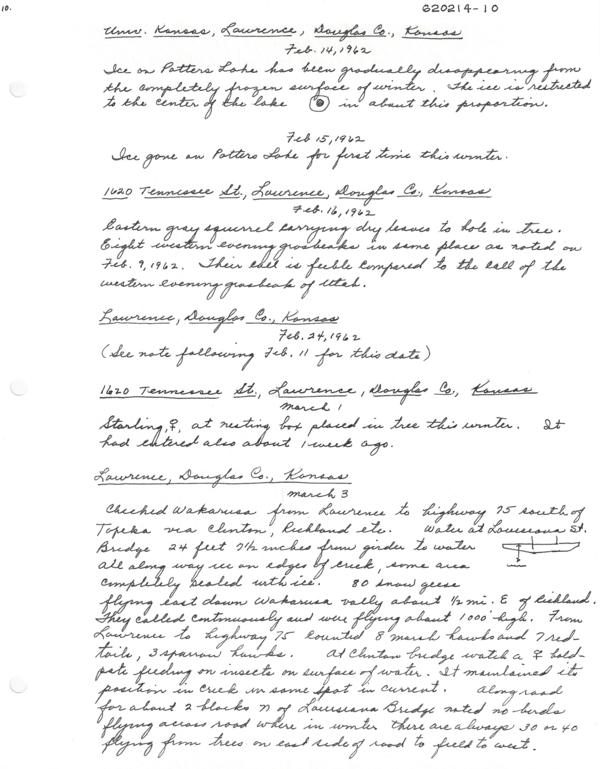 10.
G20214-10
Univ. Kansas, Lawrence, Douglas Co., Kansas
Feb. 14, 1962
Ice on Potters Lake has been gradually disappearing from
the completely frozen surface of winter. The ice is restricted
to the center of the lake in about this proportion.
Feb 15, 1962
Ice gone on Potters Lake for first time this winter.
1620 Tennessee St., Lawrence, Douglas Co., Kansas
Feb. 16, 1962
Eastern gray squirrel carrying dry leaves to hole in tree.
Eight western evening grosbeaks in same place as noted on
Feb. 9, 1962. Their call is feeble compared to the call of the
western evening grosbeak of Utah.
Lawrence, Douglas Co., Kansas
Feb. 24, 1962
(See note following Feb. 11 for this date)
1620 Tennessee St., Lawrence, Douglas Co., Kansas
March 1
Starling, ♀, at nesting box placed in tree this winter. It
had entered also about 1 week ago.
Lawrence, Douglas Co., Kansas
March 3
Checked Wakarusa from Lawrence to highway 75 south of
Topeka via Clinton, Richland etc. Water at Louisiana St.
Bridge 24 feet 7½ inches from girder to water
All along way ice on edges of creek, some area
completely sealed with ice. 80 snow geese
flying east down Wakarusa vally about ½ mi. E of Richland.
They called continuously and were flying about 1000' high. From
Lawrence to highway 75 counted 8 marsh hawks and 7 red-
tails, 3 sparrow hawks. At Clinton bridge watch a ♀ bald-
pate feeding on insects on surface of water. It maintained its
position in creek in some spot in current. Along road
for about 2 blocks N of Louisiana Bridge noted no birds
flying across road where in winter there are always 30 or 40
flying from trees on east side of road to field to west.